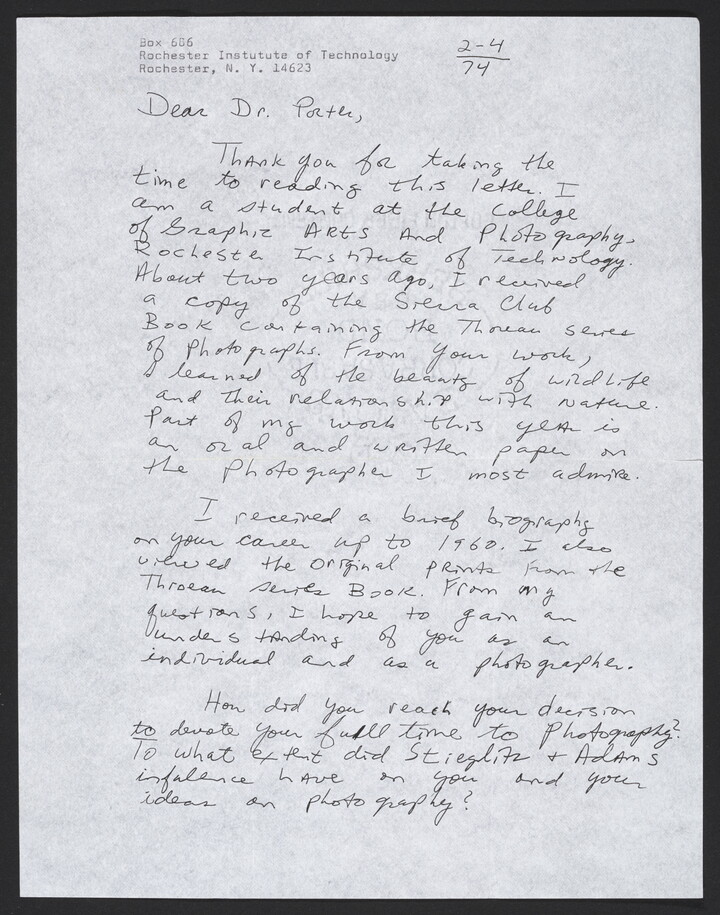 Box 686
Rochester Instutute of Technology
Rochester, N. Y. 14623
2-4
74
Dear Dr. Porter,
Thank you for taking the
time to reading this letter. I
am a student at the College
of Graphic Arts and Photography,
Rochester Institute of Technology.
About two years ago, I received
a copy of the Sierra Club
Book containing the Thoreau series
of Photographs. From your work,
I learned of the beauty of wildlife
and their relationship with nature.
Part of my work this year is
an oral and written paper on
the Photographer I most admire.
I received a brief biography
on your career up to 1960. I also
viewed the original prints from the
Throeau series Book. From my
questions, I hope to gain an
understanding of you as an
individual and as a photographer.
How did you reach your decision
to devote your full time to Photography?
To what extent did Stieglitz + Adams
infulence have on you and your
ideas on photography?